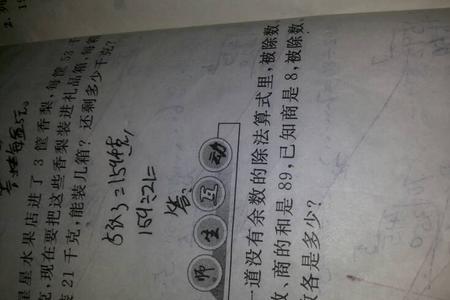 星水果店进了 3 筐香梨,每筐 53 千
克,现在要把这些香梨装进礼品箱,每箱
21 千克,能装几箱?还剩多少千克?
53×3=154千克,
154÷21=
答:
师生互动
一道没有余数的除法算式里,被除数
数、商的和是 89,已知商是 8,被除数
数各是多少?